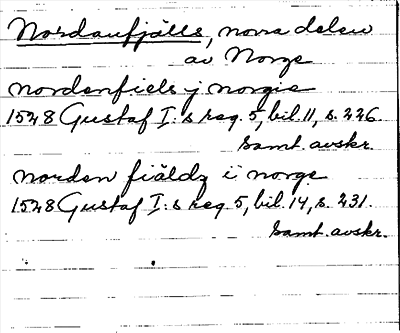 Nordanfjälls, norra delen
av Norge
nordenfiels j norgis
1528 Gustaf I:s reg. 5, bil. 11, s. 226.
Samt. avskr.
norden fiäldz ii norge
1528 Gustaf I:s reg. 5, bil. 14, s. 231.
Samt. avskr.